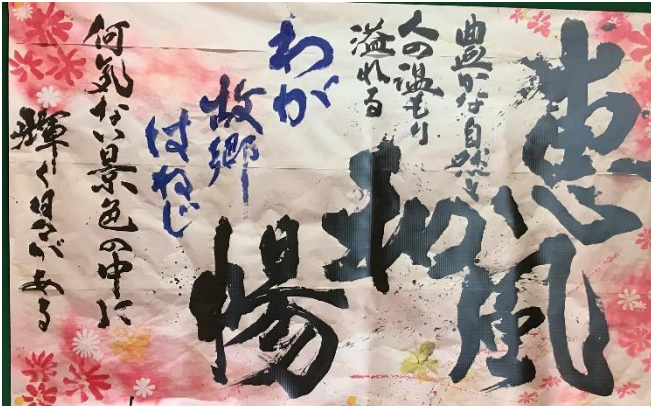 恵風
和暢
豊かな自然と
人の温もり
溢れる
わが
故郷
はねじ
何気ない景色の中に
輝く日々がある